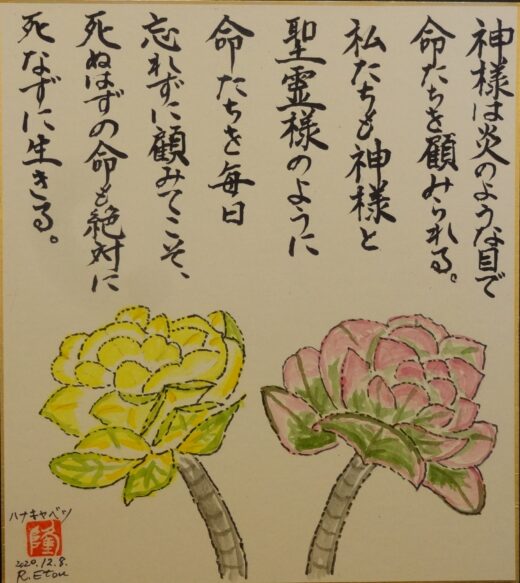 神様は炎のような目で
命たちを顧みられる。
私たちも神様と
聖霊様のように
命たちを毎日
忘れずに顧みてこそ、
死ぬはずの命も絶対に
死なずに生きる。
ハナキャベツ
隆
2020.12.8.
R.Etou